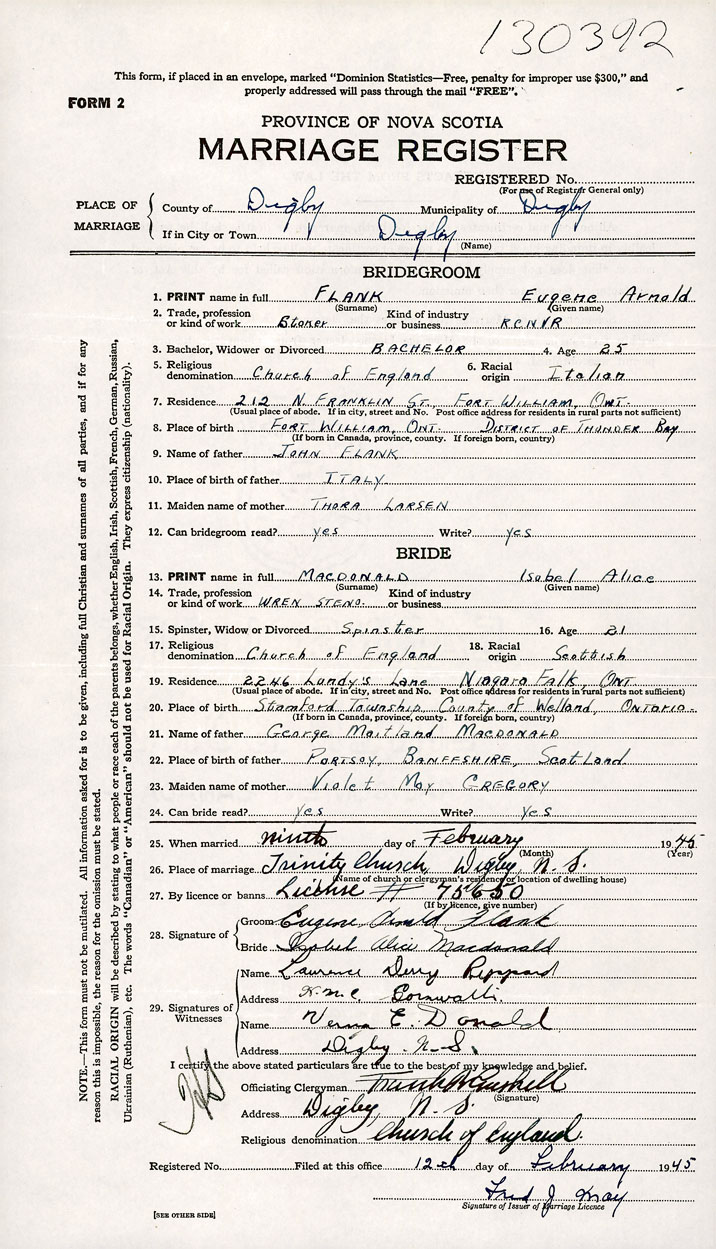 130392
This form, if placed in an envelope, marked "Dominion Statistics—Free, penalty for improper use $300," and
properly addressed will pass through the mail "FREE".
FORM 2
PROVINCE OF NOVA SCOTIA
MARRIAGE REGISTER
REGISTERED No.
(For use of Registrar General only)
PLACE OF MARRIAGE
County of Digby Municipality of Digby
If in City or Town Digby
(Name)
BRIDEGROOM
1. PRINT name in full FLANK Eugene Arnold
(Surname) (Given name)
2. Trade, profession or kind of work Stoker Kind of industry or business RCNVR
3. Bachelor, Widower or Divorced BACHELOR 4. Age 25
5. Religious denomination Church of England 6. Racial origin Italian
7. Residence 212 N. FRANKLIN ST. FORT WILLIAM, ONT.
(Usual place of abode. If in city, street and No. Post office address for residents in rural parts not sufficient)
8. Place of birth FORT WILLIAM, ONT. DISTRICT OF THUNDER BAY
(If born in Canada, province, county. If foreign born, country)
9. Name of father JOHN FLANK
10. Place of birth of father ITALY
11. Maiden name of mother THORA LARSEN
12. Can bridegroom read? yes Write? yes
BRIDE
13. PRINT name in full MACDONALD Isobel Alice
(Surname) (Given name)
14. Trade, profession or kind of work WREN STENO. Kind of industry or business
15. Spinster, Widow or Divorced Spinster 16. Age 21
17. Religious denomination Church of England 18. Racial origin Scottish
19. Residence 2246 Lundy's Lane Niagara Falk, ONT.
(Usual place of abode. If in city, street and No. Post office address for residents in rural parts not sufficient)
20. Place of birth Stamford Township, County of Welland, ONTARIO.
(If born in Canada, province, county. If foreign born, country)
21. Name of father George Maitland MACDONALD
22. Place of birth of father PORTSOY, BANFFSHIRE, Scotland
23. Maiden name of mother Violet May GREGORY
24. Can bride read? yes Write? yes
25. When married ninth day of February 1945
(Month) (Year)
26. Place of marriage Trinity Church, Digby N. S.
(Name of church or clergyman's residence or location of dwelling house)
27. By licence or banns License # 75650
(If by licence, give number)
28. Signature of
Groom Eugene Arnold Flank
Bride Isobel Alice Macdonald
29. Signatures of Witnesses
Name Laurence Derry Reppard
Address H.M.C. Cornwallis
Name Verna E. Donald
Address Digby N.S.
I certify the above stated particulars are true to the best of my knowledge and belief.
Officiating Clergyman
(Signature)
Address Digby, N. S.
Religious denomination Church of England.
Registered No. Filed at this office 12th day of February 1945
Fred J. May
Signature of Issuer of Marriage Licence
[SEE OTHER SIDE]
NOTE.—This form must not be mutilated. All information asked for is to be given, including full Christian and surnames of all parties, and if for any
reason this is impossible, the reason for the omission must be stated.
RACIAL ORIGIN will be described by stating to what people or race each of the parents belongs, whether English, Irish, Scottish, French, German, Russian,
Ukrainian (Ruthenian), etc. The words "Canadian" or "American" should not be used for Racial Origin. They express citizenship (nationality).